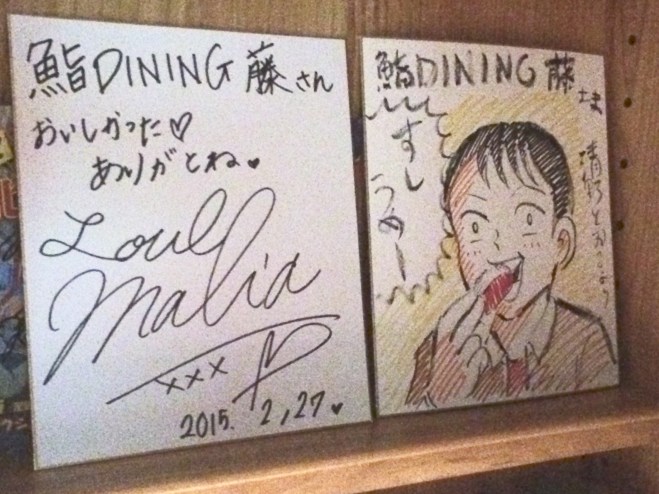 鮨DINING 藤さん
おいしかった♡
ありがとね♥
Love
malia
xxx
2015. 2,27♥
鮨DINING 藤
さま
すし
うめー